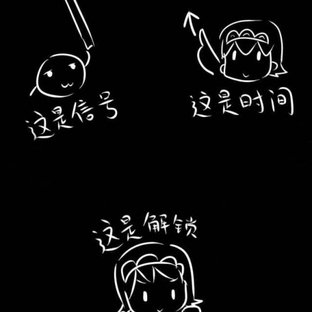 这是信号
这是时间
这是解锁